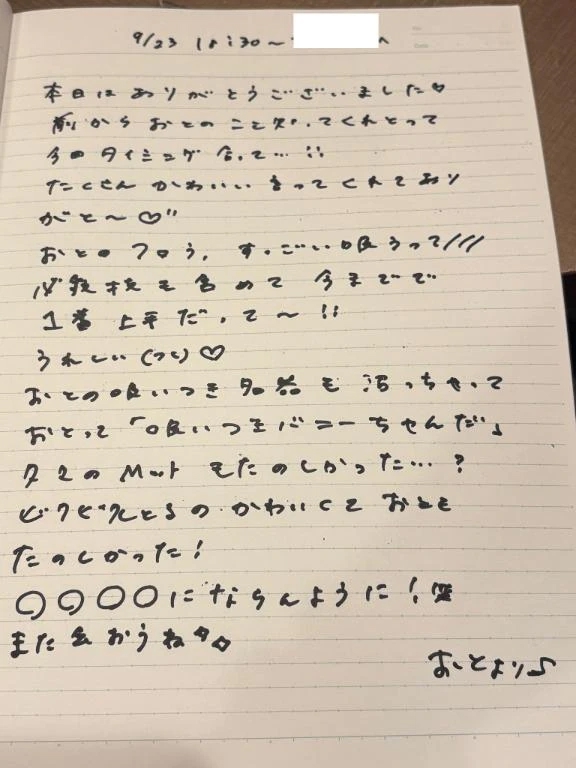 9/23 18:30〜
本日はありがとうございました♡
前からおとのこと知ってくれとって
今回タイミング合って…!!
たくさんかわいい言ってくれてあり
がと〜♡"
おとのフロう、すっごい吸うって///
必殺技も含めて今までで
1番上手だって〜!!
うれしい(つと)♡
おとの吸いつき名器も活っちゃって
おとって「吸いつきバニーちゃんだ」
タ2のMットもたのしかった…?
ビクビクとるのかわいくておとも
たのしかった!
〇〇〇〇にならんように!笑
また会おうね
おとより♪